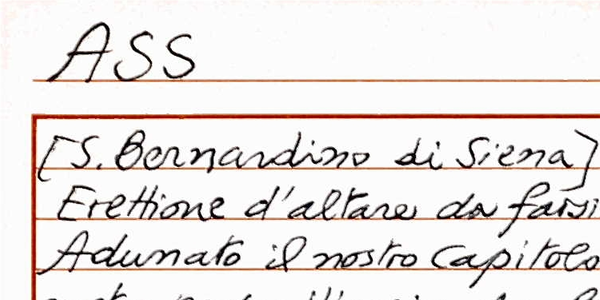 ASS
[S. Bernardino di Siena]
Erettione d'altare da farsi
Adunato il nostro Capitolo